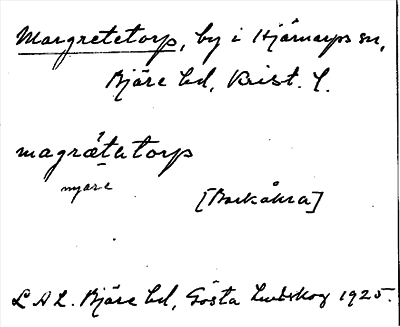 Margretetorp, by i Hjärnarps sn,
Bjäre hd, Krist. l.
magrätetorp
nyare
[Barkåkra]
L A L. Bjäre hd, Gösta Lindskog 1925.